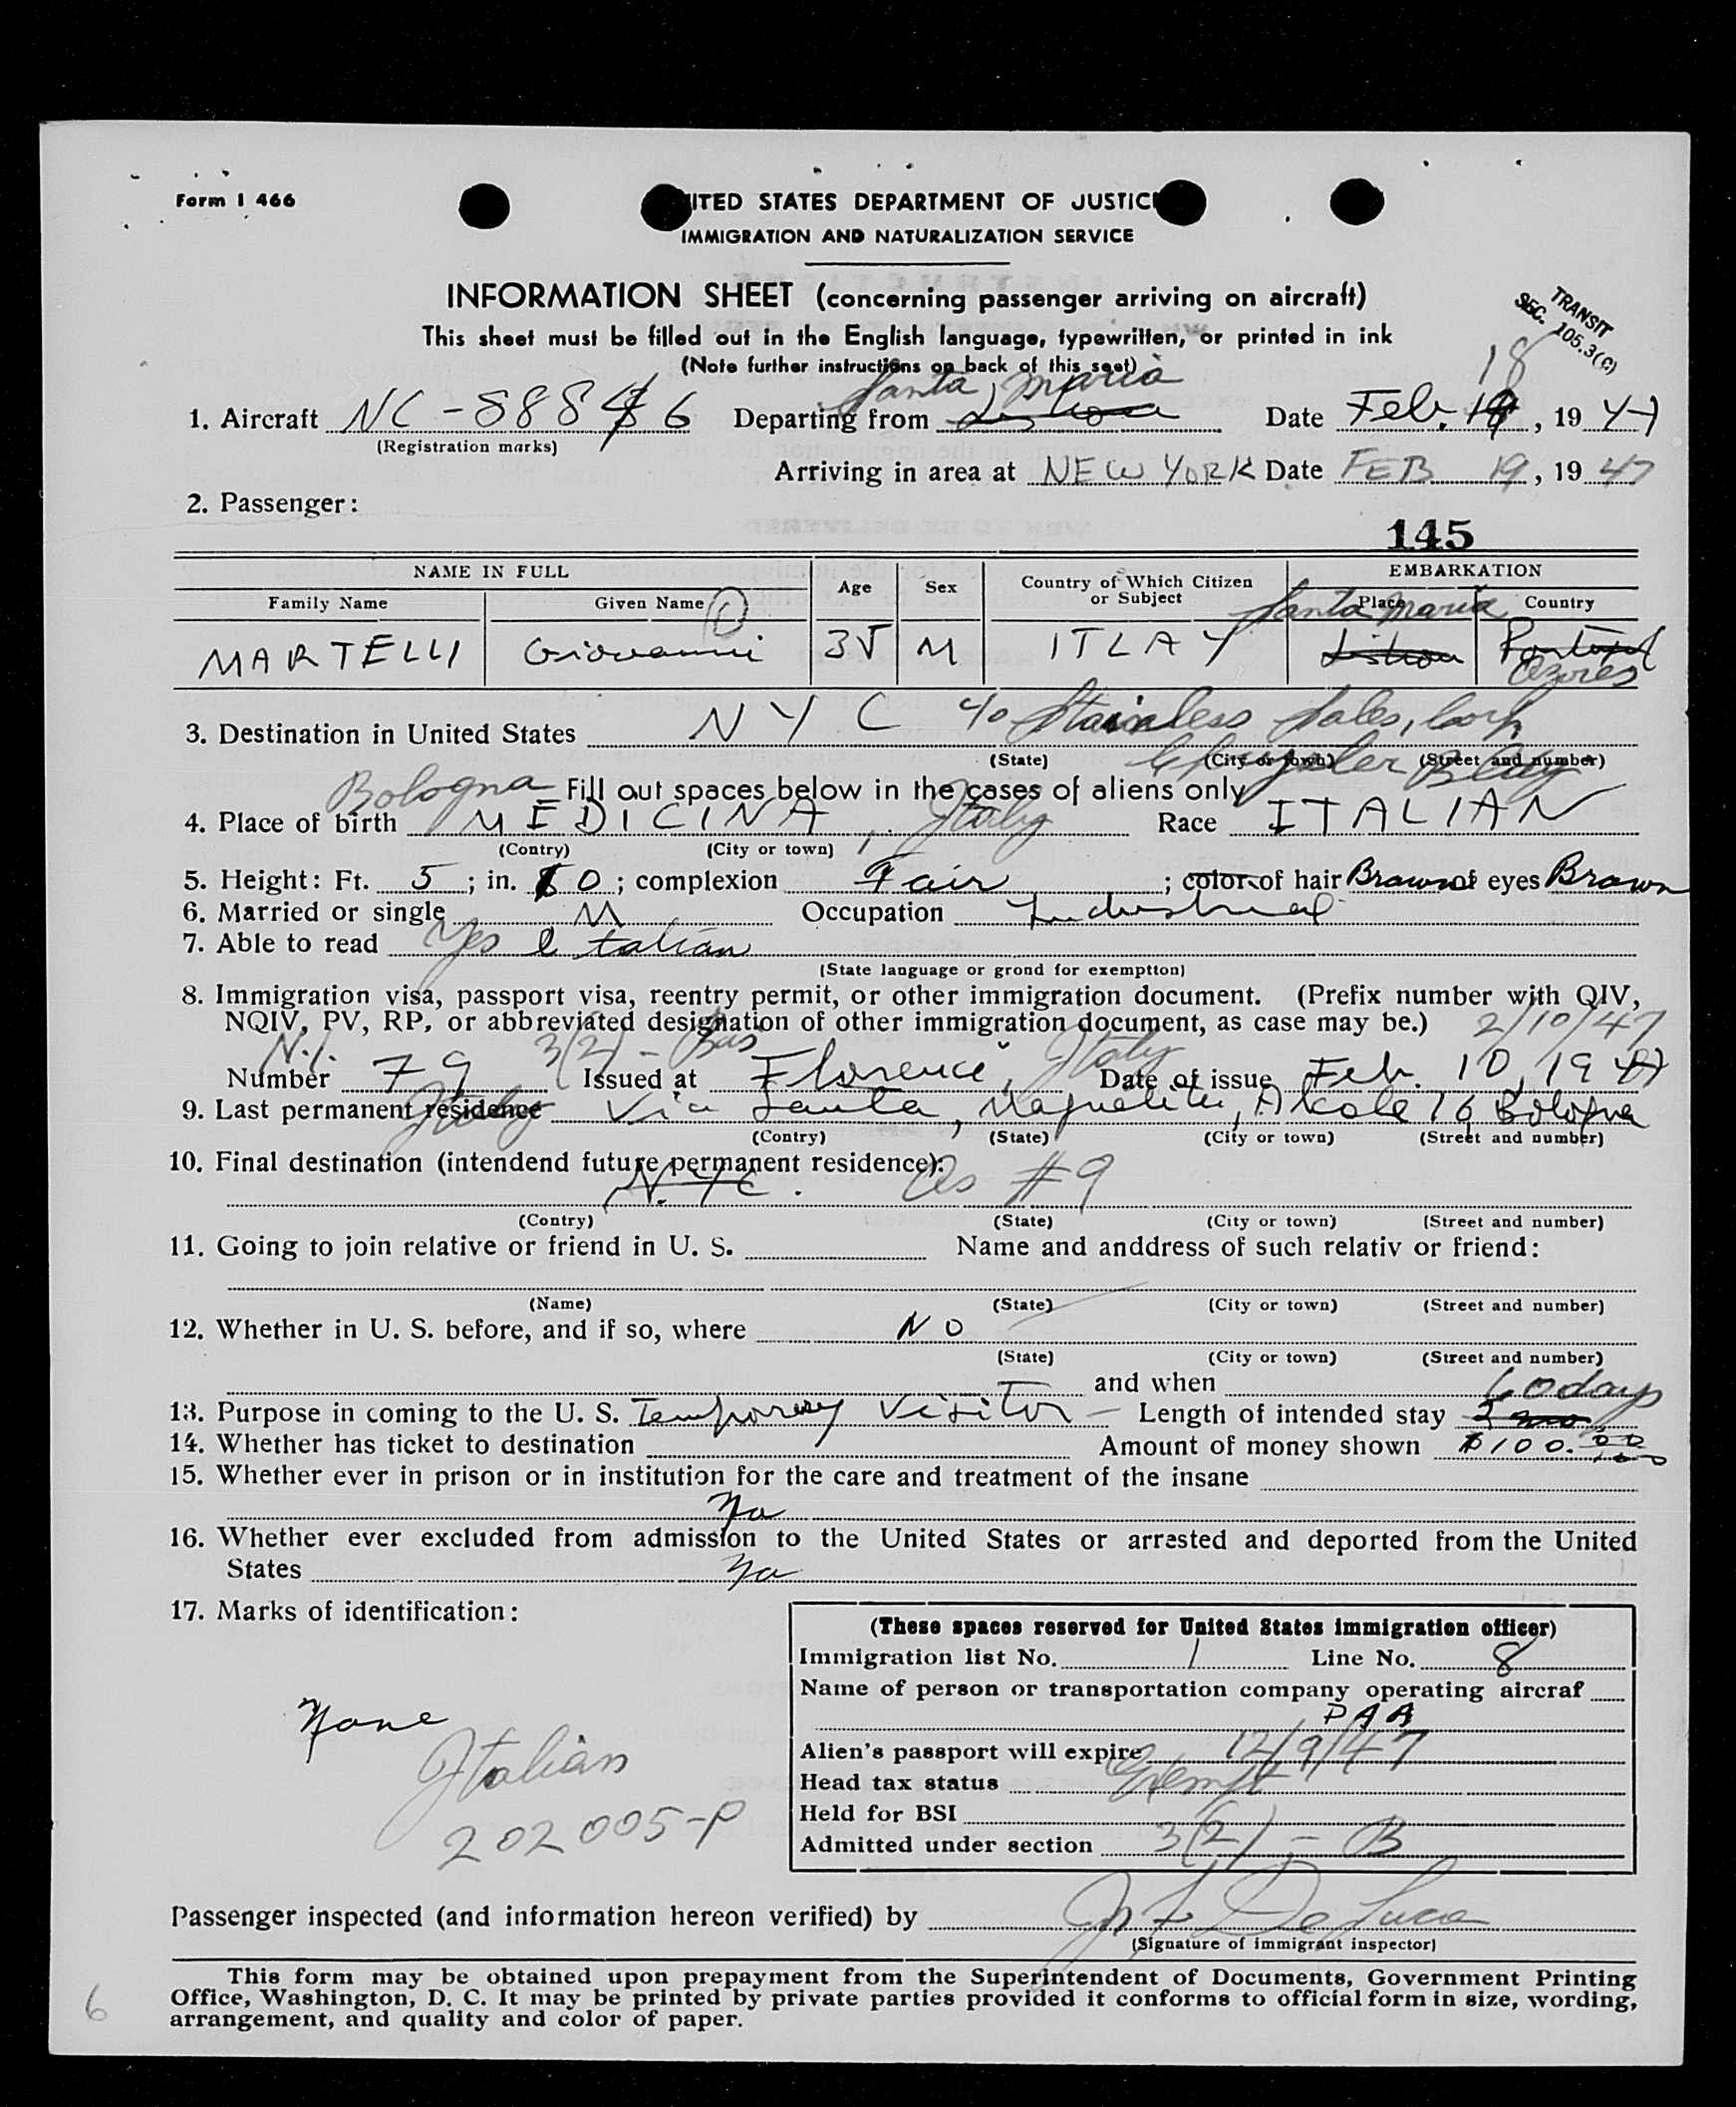 Form I 466
ITED STATES DEPARTMENT OF JUSTIC
IMMIGRATION AND NATURALIZATION SERVICE
INFORMATION SHEET (concerning passenger arriving on aircraft)
TRANSIT
SEC. 105.3(C)
This sheet must be filled out in the English language, typewritten, or printed in ink
(Note further instructions on back of this seet)
Santa Maria 18
1. Aircraft NC-888 6 Departing from Lisboa Date Feb. 19, 1947
(Registration marks)
Arriving in area at NEW YORK Date FEB 19, 1947
2. Passenger:
145
NAME IN FULL Age Sex Country of Which Citizen or Subject EMBARKATION
Family Name Given Name Place Country
Santa Maria
MARTELLI Giovanni 35 M ITLAY Lisbon Portugal
Azores
3. Destination in United States NYC c/o Stainless Sales, Corp
(State) (City or town) (Street and number)
Chrysler Bldg
Bologna Fill out spaces below in the cases of aliens only
4. Place of birth MEDICINA, Italy Race ITALIAN
(Contry) (City or town)
5. Height: Ft. 5; in. 0; complexion Fair; color of hair Brown of eyes Brown
6. Married or single M Occupation Industrial
7. Able to read Yes Italian
(State language or grond for exemptton)
8. Immigration visa, passport visa, reentry permit, or other immigration document. (Prefix number with QIV,
NQIV, PV, RP, or abbreviated designation of other immigration document, as case may be.) 2/10/47
N.I. 3(2) - Bus Italy
Number 79 Issued at Florence, Date of issue Feb. 10, 1947
9. Last permanent residence Via Santa, 16 Bologna
Italy
(Contry) (State) (City or town) (Street and number)
10. Final destination (intendend future permanent residence):
N.Y.C. As #9
(Contry) (State) (City or town) (Street and number)
11. Going to join relative or friend in U. S. Name and anddress of such relativ or friend:
(Name) (State) (City or town) (Street and number)
12. Whether in U. S. before, and if so, where NO
(State) (City or town) (Street and number)
and when
60 days
13. Purpose in coming to the U. S. Temporary Visitor - Length of intended stay
14. Whether has ticket to destination Amount of money shown $100.00
15. Whether ever in prison or in institution for the care and treatment of the insane
No
16. Whether ever excluded from admission to the United States or arrested and deported from the United
States No
17. Marks of identification:
None
Italian
202005-P
(These spaces reserved for United States immigration officer)
Immigration list No. 1 Line No. 8
Name of person or transportation company operating aircraf
PAA
Alien's passport will expire 12/9/47
Head tax status Exempt
Held for BSI
Admitted under section 3(2) - B
Passenger inspected (and information hereon verified) by De Luca
(Signature of immigrant inspector)
This form may be obtained upon prepayment from the Superintendent of Documents, Government Printing
Office, Washington, D. C. It may be printed by private parties provided it conforms to official form in size, wording,
arrangement, and quality and color of paper.
6